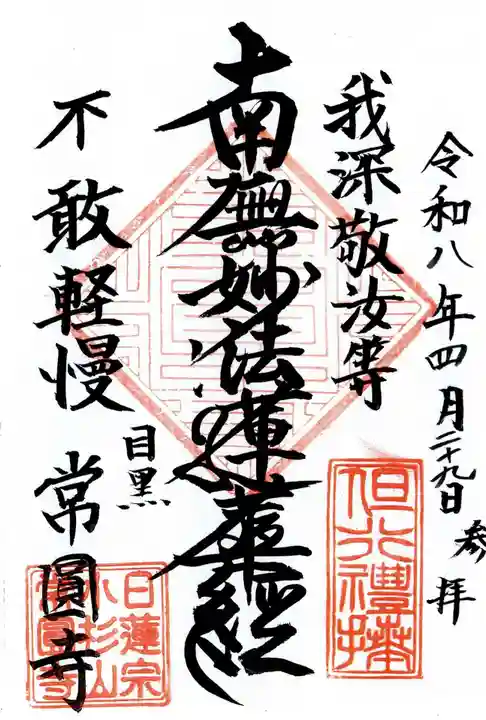 令和八年四月二十九日 参拝
我深敬汝等
南無妙法蓮華経
不敢軽慢
目黒
常圓寺
但行禮拝
日蓮宗
小杉山
常圓寺